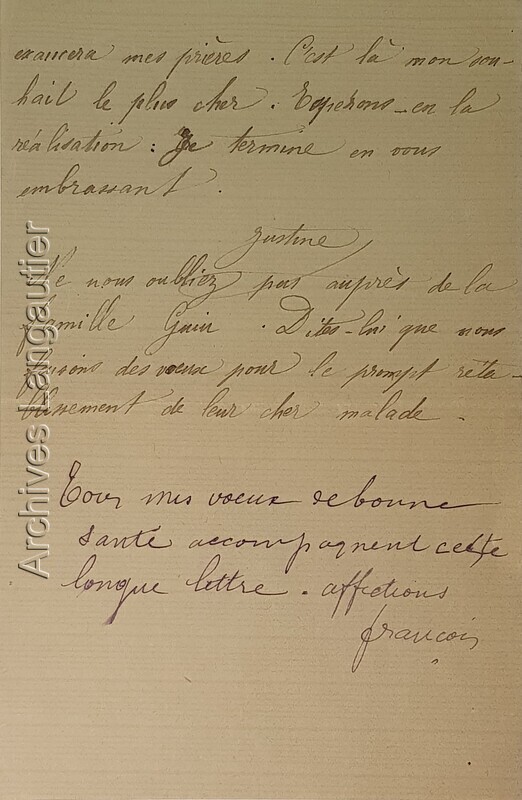 exaucera mes prières. C'est là mon sou-
hait le plus cher. Espérons-en la
réalisation : Je termine en vous
embrassant.
Justine
Ne nous oubliez pas auprès de la
famille Guin. Dites-lui que nous
faisons des vœux pour le prompt réta-
blissement de leur cher malade.
Tous mes vœux de bonne
santé accompagnent cette
longue lettre. affections
françois
Archives Langautier